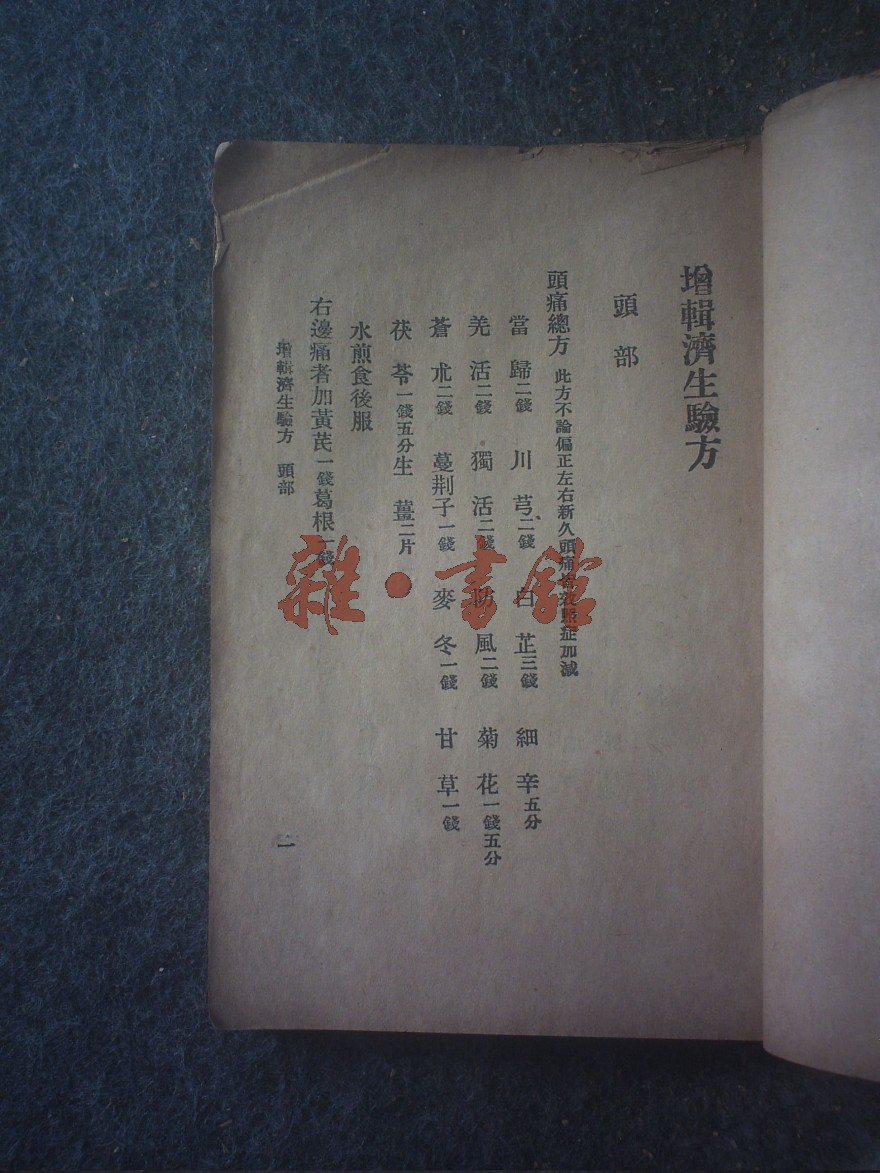 增輯濟生驗方
頭部
頭痛總方 此方不論偏正左右新久頭痛皆效照症加減
當歸二錢 川芎二錢 白芷三錢 細辛五分
羌活二錢 獨活二錢 防風二錢 菊花一錢五分
蒼朮二錢 蔓荆子一錢 麥冬一錢 甘草一錢
茯苓一錢五分 生薑二片
水煎食後服
右邊痛者加黃芪一錢葛根一錢
增輯濟生驗方 頭部
一
雜·書館